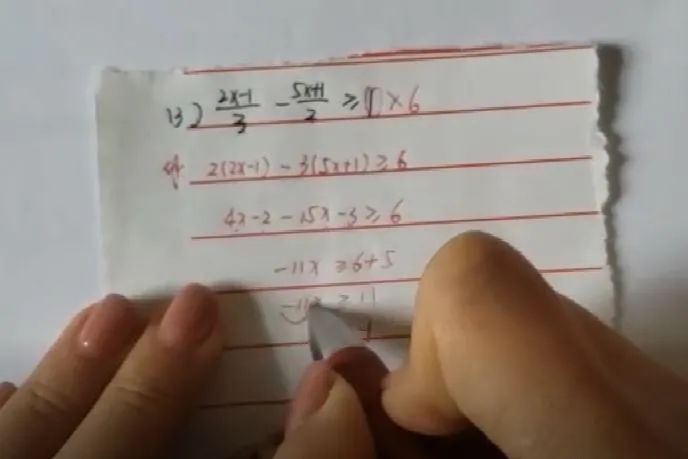 13) \frac{2x-1}{3} - \frac{5x+1}{2} ≥ 1 × 6
2(2x-1) - 3(5x+1) ≥ 6
4x-2-15x-3 ≥ 6
-11x ≥ 6+5
-11x ≥ 11